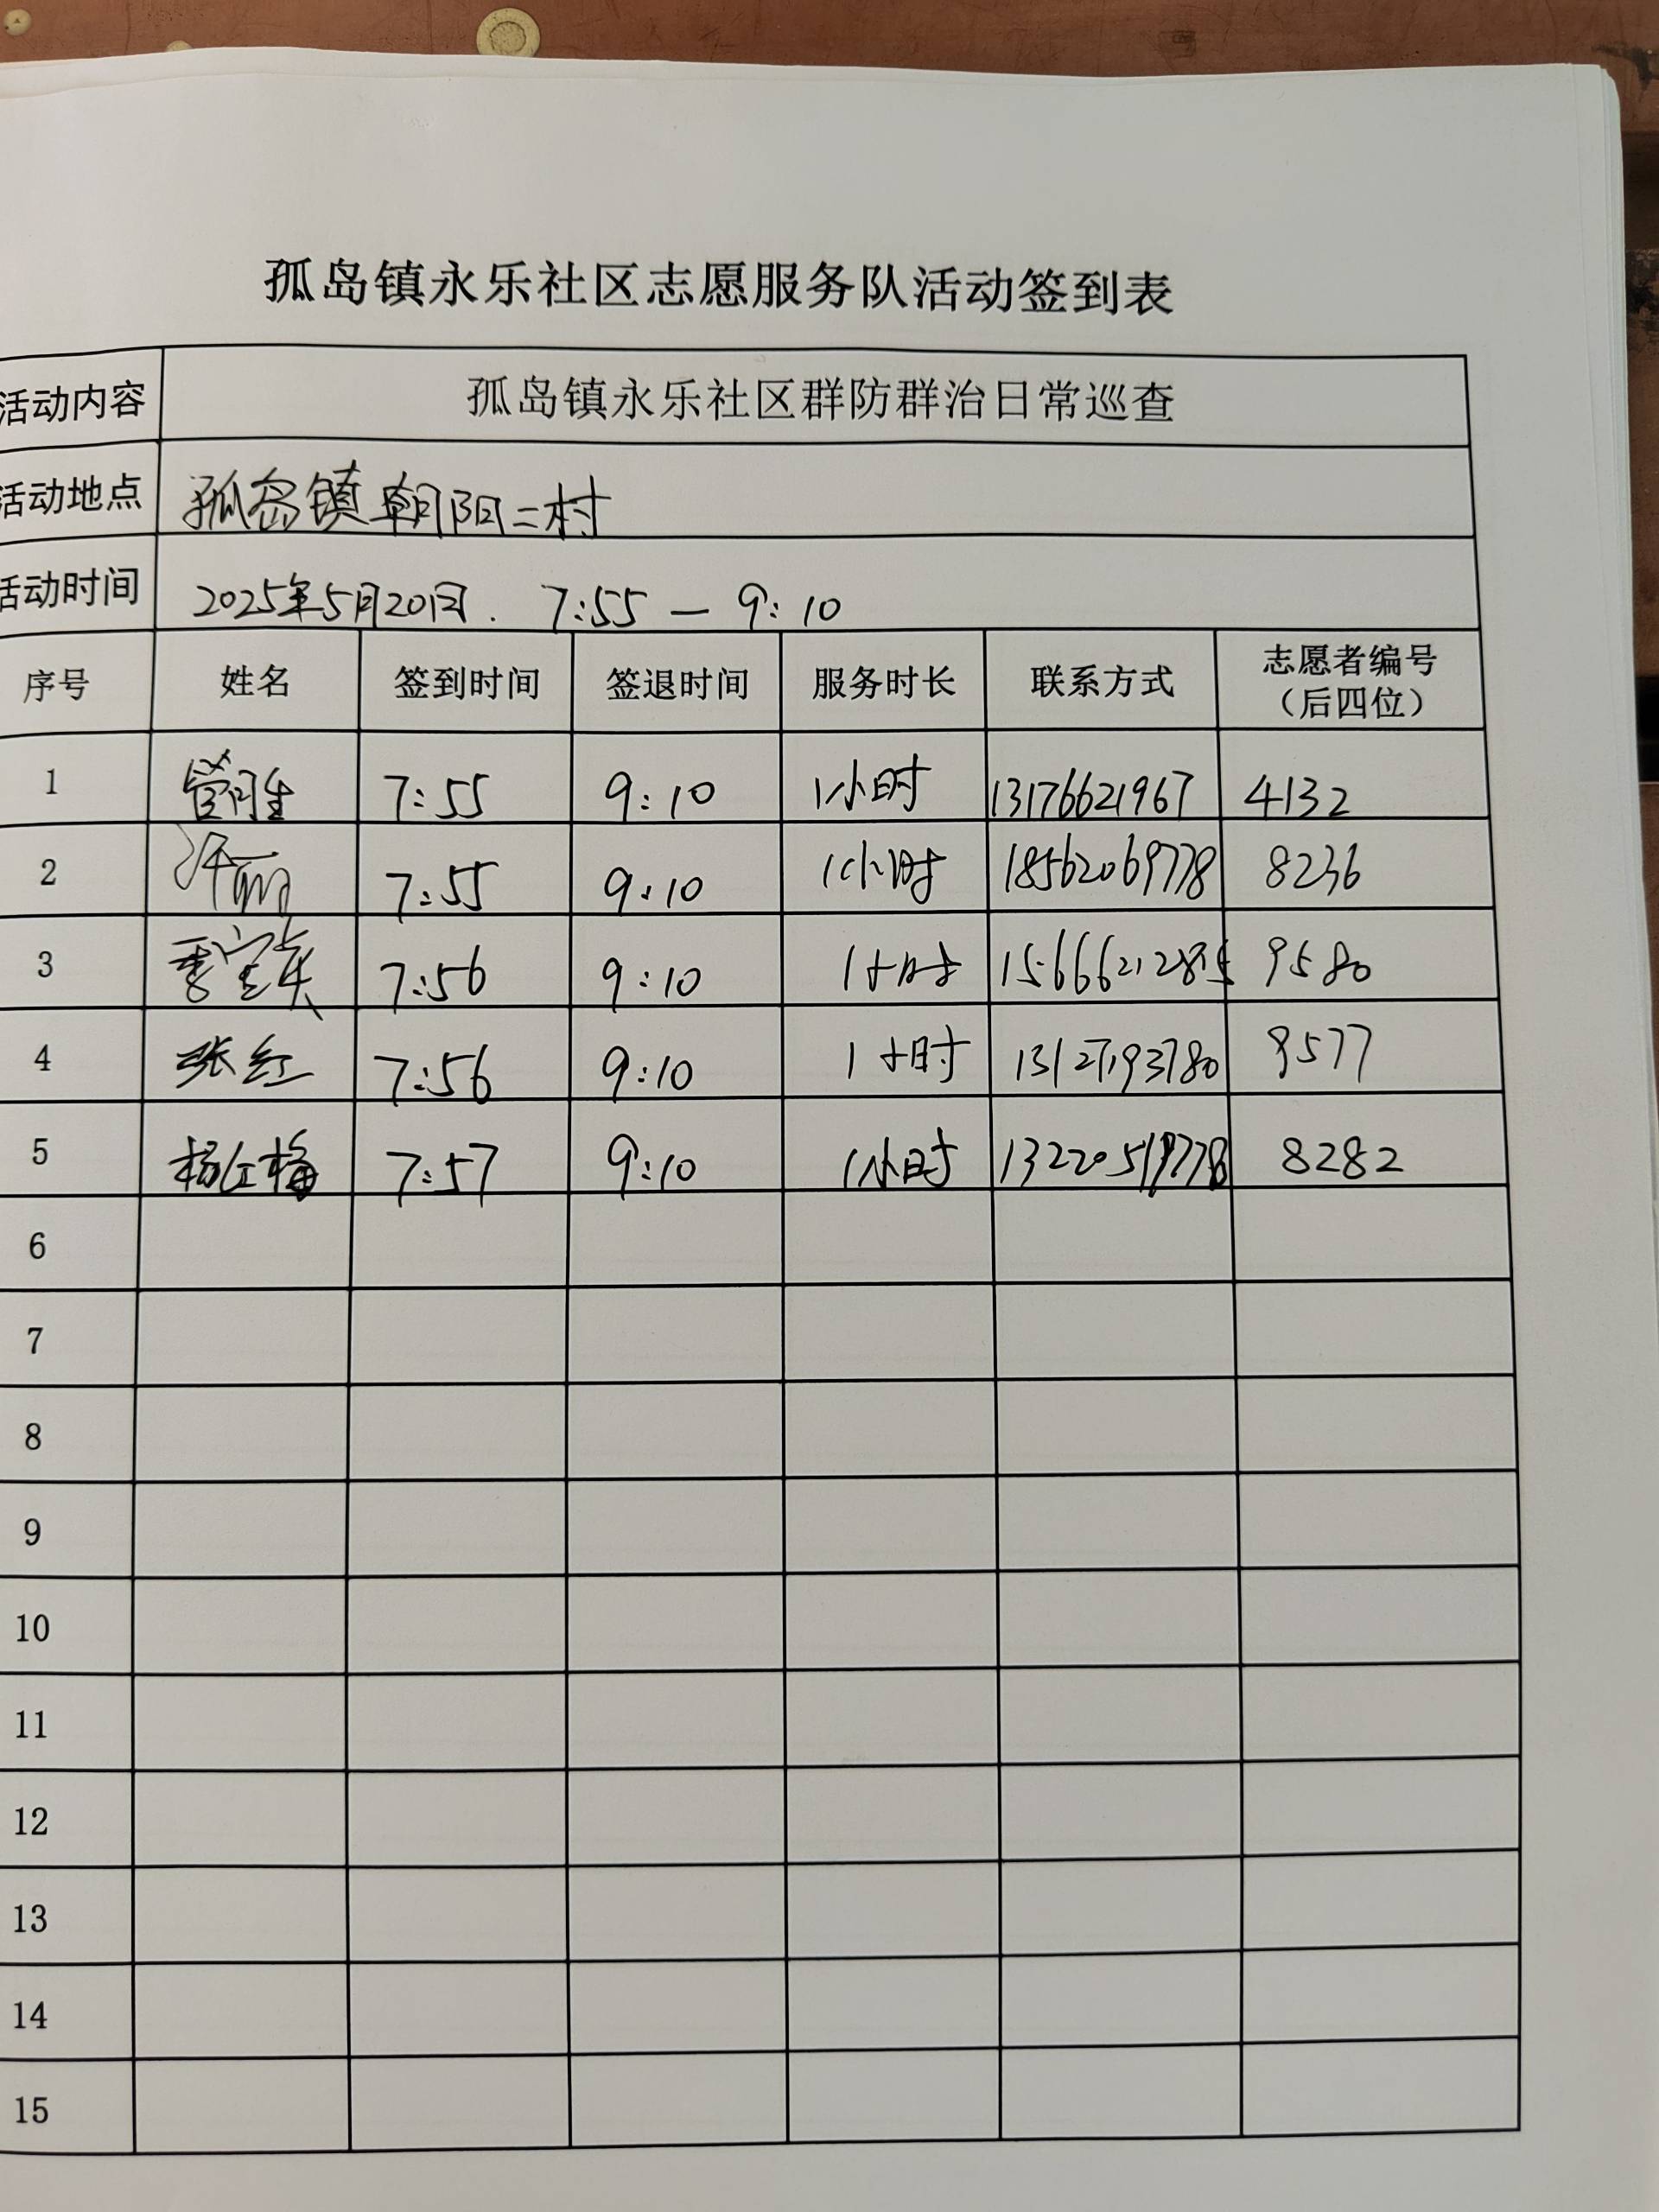 孤岛镇永乐社区志愿服务队活动签到表
活动内容 孤岛镇永乐社区群防群治日常巡查
活动地点 孤岛镇朝阳二村
活动时间 2025年5月20日. 7:55 — 9:10
序号 姓名 签到时间 签退时间 服务时长 联系方式 志愿者编号（后四位）
1 7:55 9:10 1小时 13176621967 4132
2 许丽 7:55 9:10 1小时 18562069778 8236
3 7:56 9:10 1小时 9580
4 张红 7:56 9:10 1小时 9577
5 杨红梅 7:57 9:10 1小时 8282
6
7
8
9
10
11
12
13
14
15